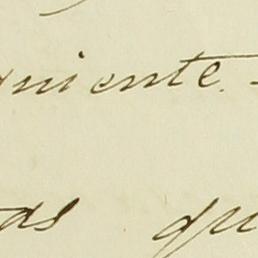 guiente.
as qu